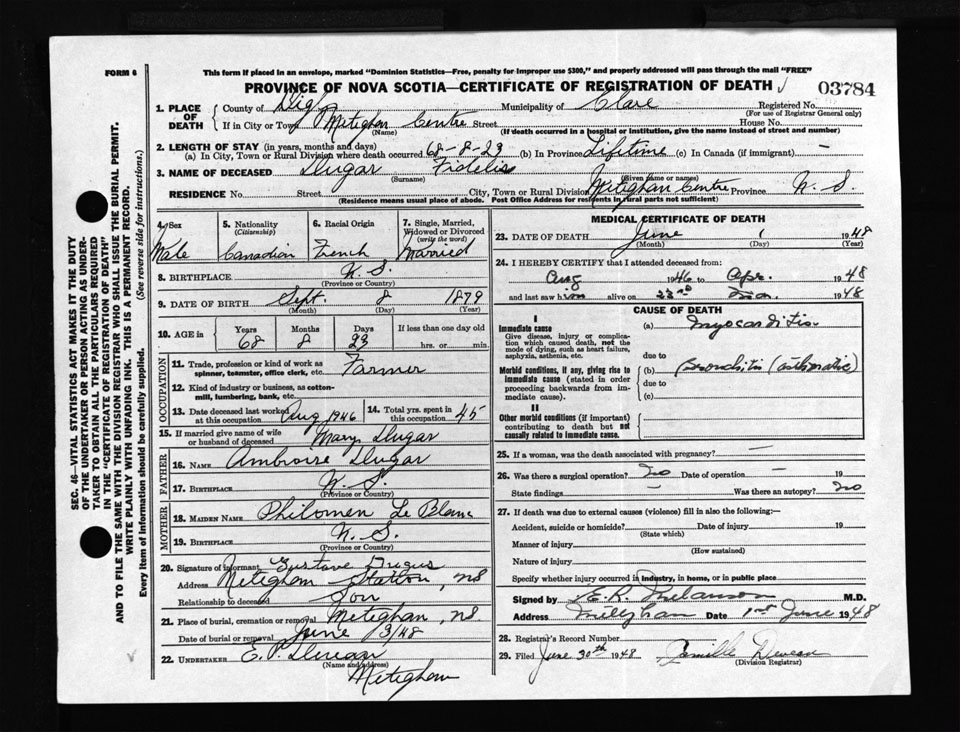 FORM 6
This form if placed in an envelope, marked "Dominion Statistics—Free, penalty for improper use $300," and properly addressed will pass through the mail "FREE"
PROVINCE OF NOVA SCOTIA—CERTIFICATE OF REGISTRATION OF DEATH
03784
1. PLACE OF DEATH County of Digby Municipality of Clare Registered No.
(For use of Registrar General only)
If in City or Town Meteghan Centre Street House No.
(Name) (If death occurred in a hospital or institution, give the name instead of street and number)
2. LENGTH OF STAY (in years, months and days)
(a) In City, Town or Rural Division where death occurred 68-8-23 (b) In Province Lifetime (c) In Canada (if immigrant) —
3. NAME OF DECEASED Dugas Fidelis
(Surname) (Given name or names)
RESIDENCE No. Street City, Town or Rural Division Meteghan Centre Province N. S.
(Residence means usual place of abode. Post Office Address for residents in rural parts not sufficient)
4. Sex Male
5. Nationality (Citizenship) Canadian
6. Racial Origin French
7. Single, Married, Widowed or Divorced (write the word) Married
8. BIRTHPLACE N. S.
(Province or Country)
9. DATE OF BIRTH Sept. 8 1879
(Month) (Day) (Year)
10. AGE in Years 68 Months 8 Days 23 If less than one day old hrs. or min.
OCCUPATION
11. Trade, profession or kind of work as spinner, teamster, office clerk, etc. Farmer
12. Kind of industry or business, as cotton-mill, lumbering, bank, etc.
13. Date deceased last worked at this occupation Aug 1946
14. Total yrs. spent in this occupation 45
15. If married give name of wife or husband of deceased Mary Dugas
FATHER
16. NAME Ambroise Dugas
17. BIRTHPLACE N. S.
(Province or Country)
MOTHER
18. MAIDEN NAME Philomen Le Blanc
19. BIRTHPLACE N. S.
(Province or Country)
20. Signature of informant Gustave Dugas
Address Meteghan Station, NS
Relationship to deceased Son
21. Place of burial, cremation or removal Meteghan, NS.
Date of burial or removal June 3/48
22. UNDERTAKER E. P.
(Name and address)
Meteghan
MEDICAL CERTIFICATE OF DEATH
23. DATE OF DEATH June 1 1948
(Month) (Day) (Year)
24. I HEREBY CERTIFY that I attended deceased from:
Aug 1946 to Apr. 1948
and last saw him alive on 23rd 1948
CAUSE OF DEATH
I
Immediate cause
Give disease, injury or complication which caused death, not the mode of dying, such as heart failure, asphyxia, asthenia, etc.
(a) Myocarditis.
due to
Morbid conditions, if any, giving rise to immediate cause (stated in order proceeding backwards from immediate cause).
(b) Bronchitis (asthmatic)
due to
(c)
II
Other morbid conditions (if important) contributing to death but not causally related to immediate cause.
25. If a woman, was the death associated with pregnancy? —
26. Was there a surgical operation? No Date of operation — 19
State findings — Was there an autopsy? No
27. If death was due to external causes (violence) fill in also the following:—
Accident, suicide or homicide? Date of injury 19
(State which)
Manner of injury
(How sustained)
Nature of injury
Specify whether injury occurred in industry, in home, or in public place
Signed by E. R. Melanson M.D.
Address Meteghan Date 1st June 1948
28. Registrar's Record Number
29. Filed June 30th 1948 Camille
(Division Registrar)
SEC. 46—VITAL STATISTICS ACT MAKES IT THE DUTY
OF THE UNDERTAKER OR PERSON ACTING AS UNDER-
TAKER TO OBTAIN ALL THE PARTICULARS REQUIRED
IN THE "CERTIFICATE OF REGISTRATION OF DEATH"
AND TO FILE THE SAME WITH THE DIVISION REGISTRAR WHO SHALL ISSUE THE BURIAL PERMIT.
WRITE PLAINLY WITH UNFADING INK. THIS IS A PERMANENT RECORD.
Every item of information should be carefully supplied. (See reverse side for instructions.)